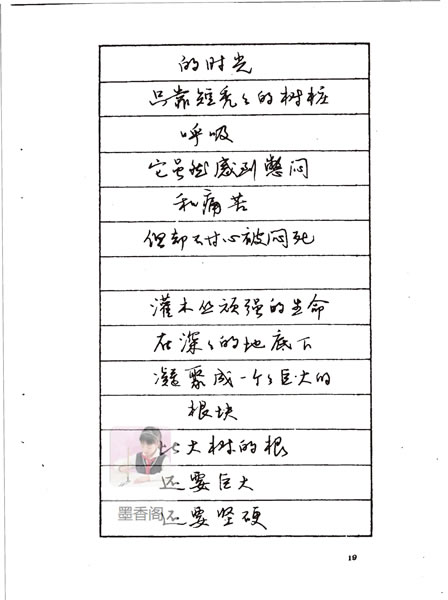 的时光
只靠短秃々的树桩
呼吸
它虽然感到憋闷
和痛苦
但却不甘心被闷死
灌木丛顽强的生命
在深々的地底下
凝聚成一个々巨大的
根块
比大树的根
还要巨大
还要坚硬
墨香阁
19